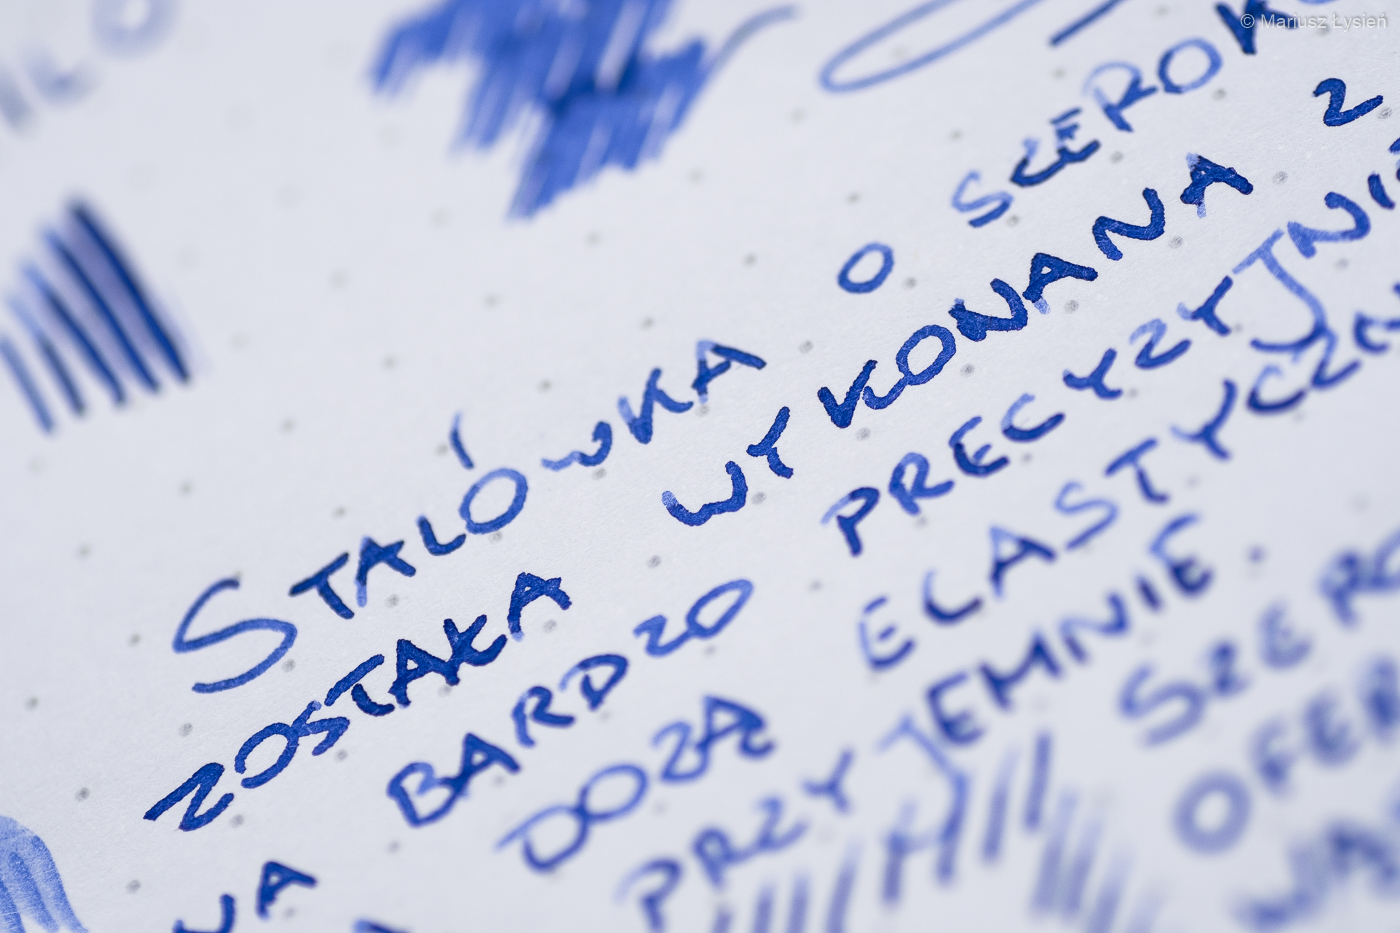 © Mariusz Łysień
STALÓWKA O SZEROK
ZOSTAŁA WYKONANA Z
BARDZO PRECYZYJNIE
DOZĄ ELASTYCZN
PRZYJEMNIE
SZERO
OFER
WA